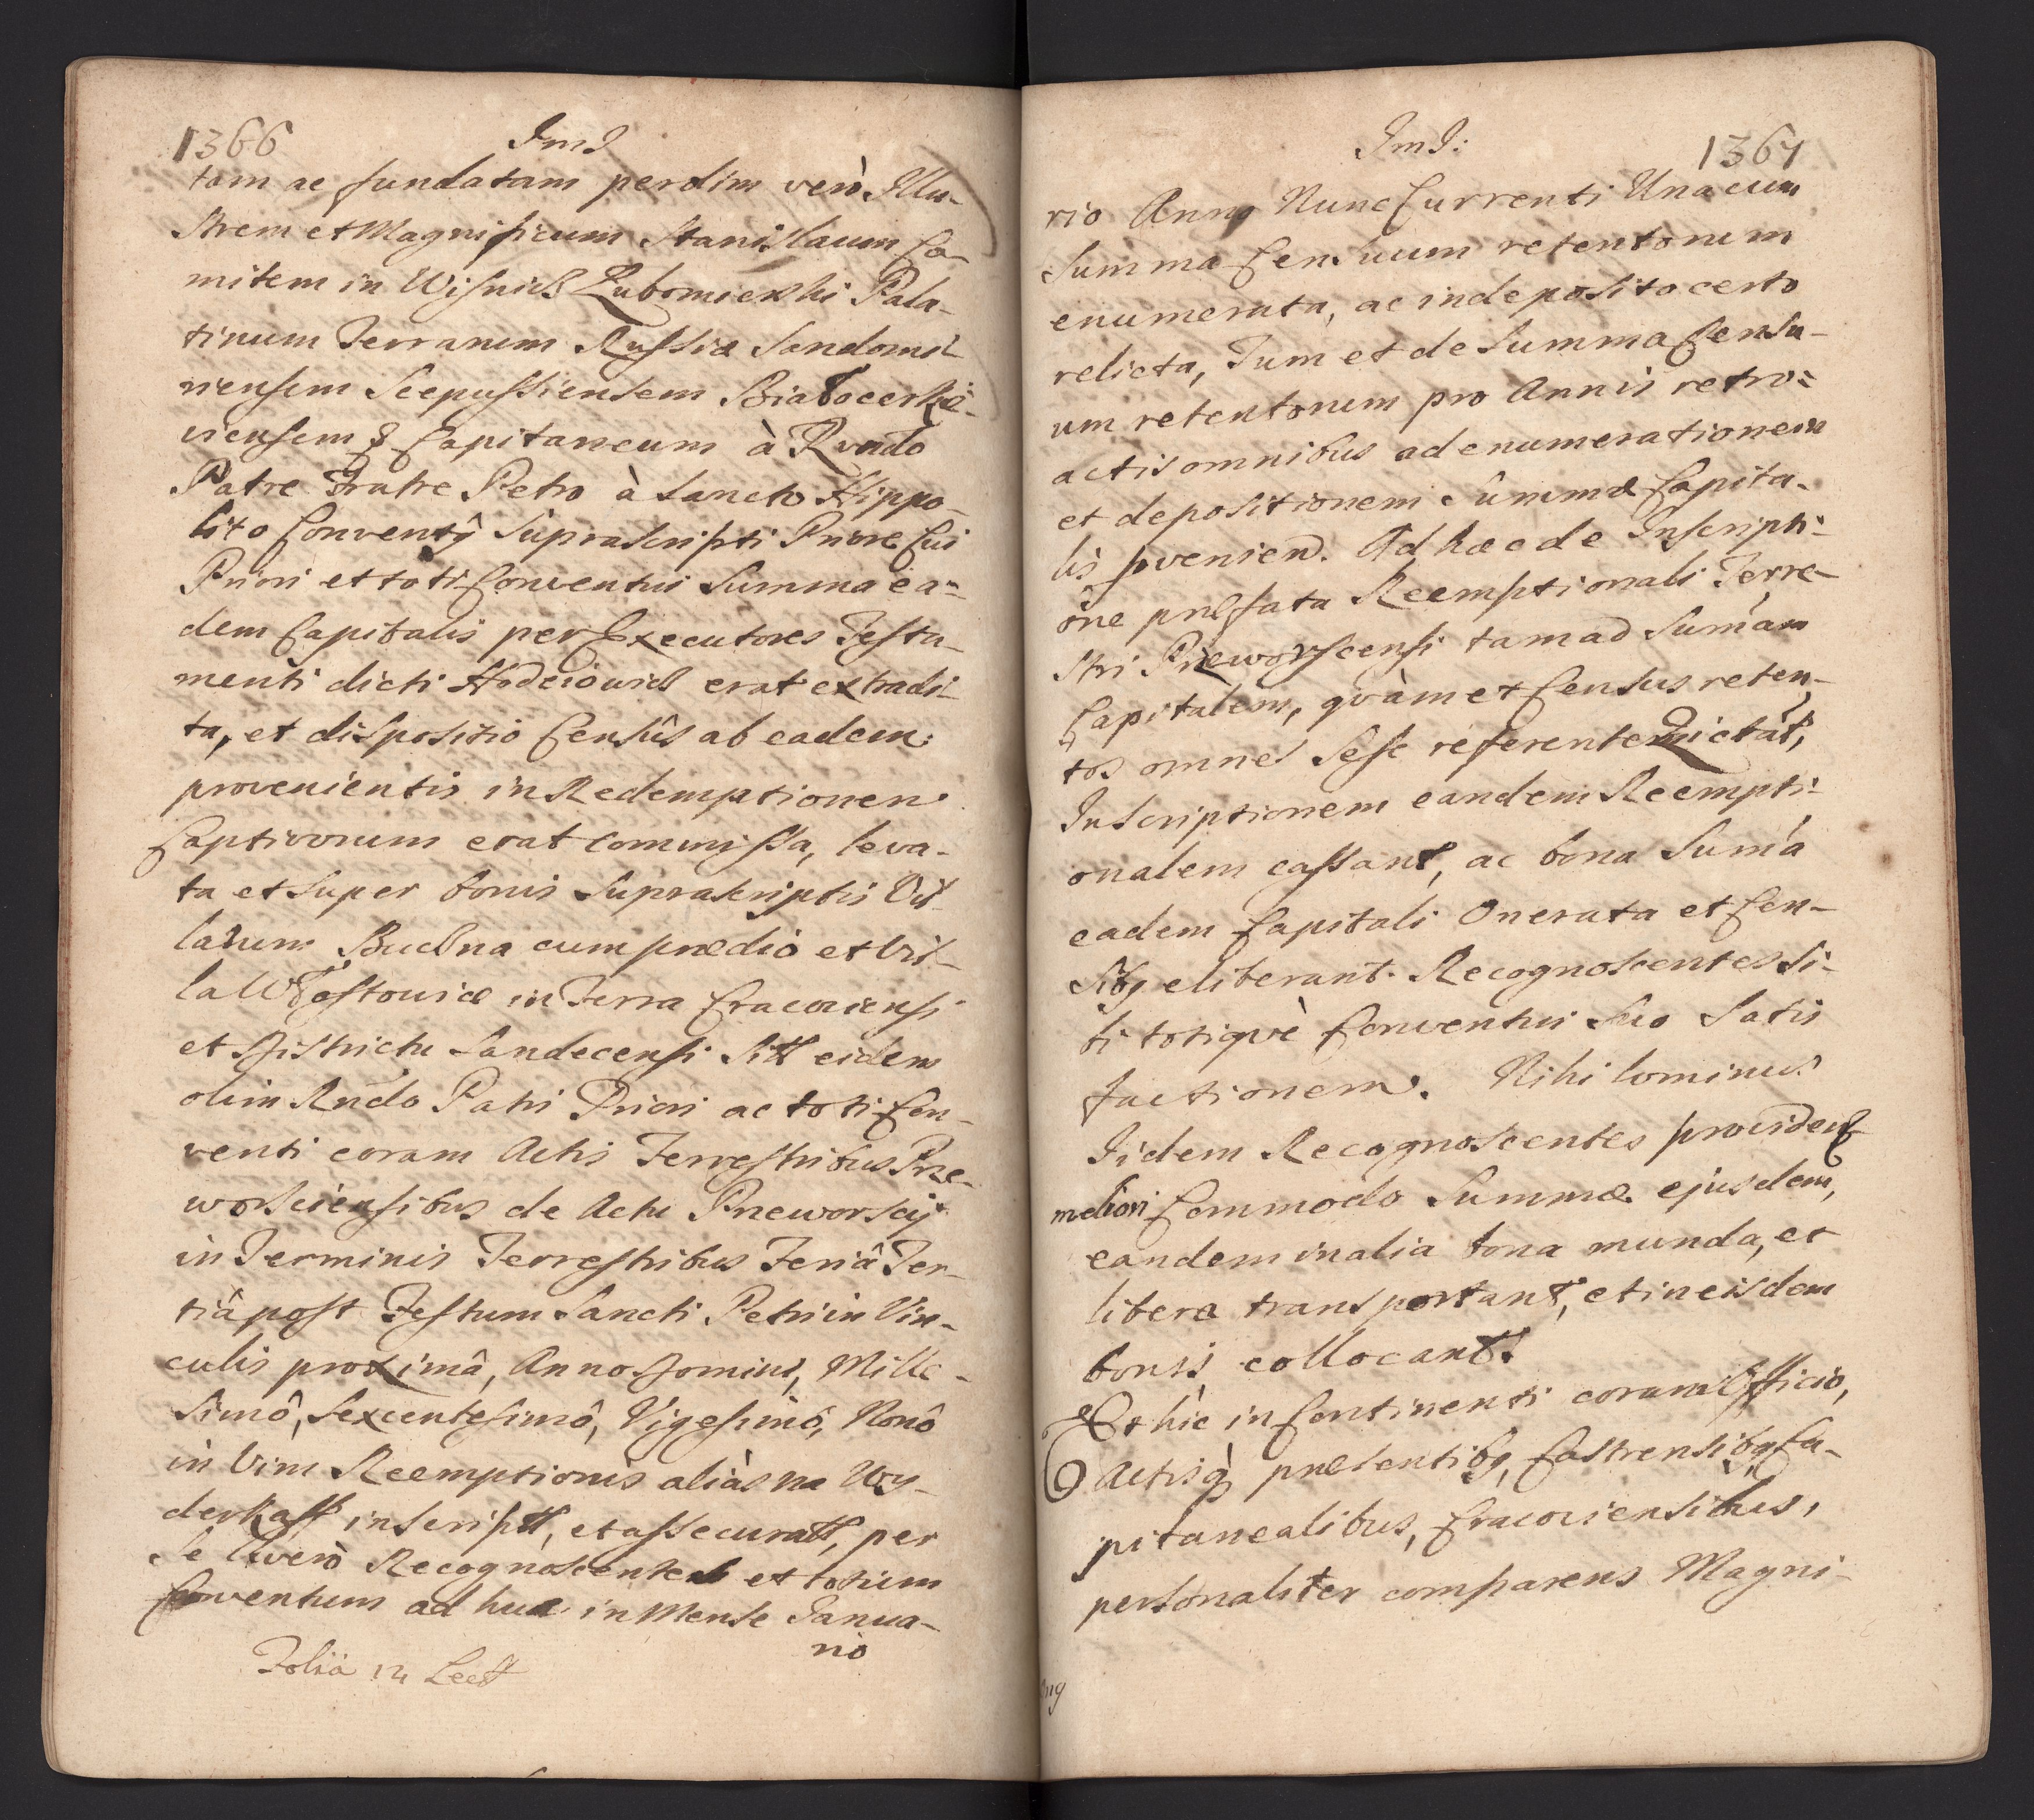 1366
ImI
tam ac fundatam perdim verò Illu-
strem et Magnificum Stanislaum Co-
mitem in Wisnicz Lubomierski Pala-
tinum Terrarum Russiæ Sandomi-
riensem Scepusiensem Białocerkie-
viensem & Capitaneum à Rvndo
Patre Fratre Petro à Sancto Hippo-
lito Conventq̃ Suprascripti Priore sui
Priori et toti Conventui Summa ea=
dem Capitalis per Executores Testa-
menti dicti erat extradi-
ta, et dispositio Censûs ab eadem
provenientis in Redemptionem
Captivorum erat commissa, leva-
ta et super bonis Suprascriptis Vil-
larum Buczna cum prædio et Vil-
la Włostowice in Terra Cracoviensi
et Districtu Sandecensi Sitt eidem
olim Rndo Patri Priori ac toti Con-
venti coram Actis Terrestribus Prze-
worsciensibus de Actu Przeworscij
in Terminis Terrestribus Feriâ Ter-
tiâ post Festum Sancti Petri in Vin-
culis proximâ, Anno Domini, Mille-
simô, Sexcentesimô, Vigesimô, Nonô
in Vim Reemptionis aliàs na Wy-
derkaff inscriptt, et assecuratt, per
Se verò Recognoscentes et totum
Conventum ad huc in Mense Janua-
rio
Folia 14 Lect
ImI:
1367
rio Anno Nunc Currenti Una cum
Summa Censuum retentorum
enumerata, ac in deposito certo
relicta, Tum et de Summa Censu-
um retentorum pro Annis retro=
actis omnibus ad enumerationem
et depositionem Summæ Capita-
lis pvenien. Ad hæc de Inscripti-
õne præfata Reemptionali Terre-
stri Przeworscensi tam ad Sumam
Capitalem, qvàm et Census reten-
tos omnes Sese referente Qvietat,
Inscriptionem eandem Reempti-
onalem cassant, ac bona Suma
eadem Capitali Onerata et Cen-
sibq eliberant. Recognoscentes Si-
bi totiqvè Conventui Suo Satis
factionem. Nihilominus
Iidem Recognoscentes
meliori Commodo Summæ ejusdem,
eandem in alia bona munda, et
libera transportant, et in eisdem
bonis collocant.
Et hìc in Continenti coram Officio,
Actisq̀ præsentibq, Castrensibq Ca-
pitanealibus, Cracoviensibus,
personaliter comparens Magni-